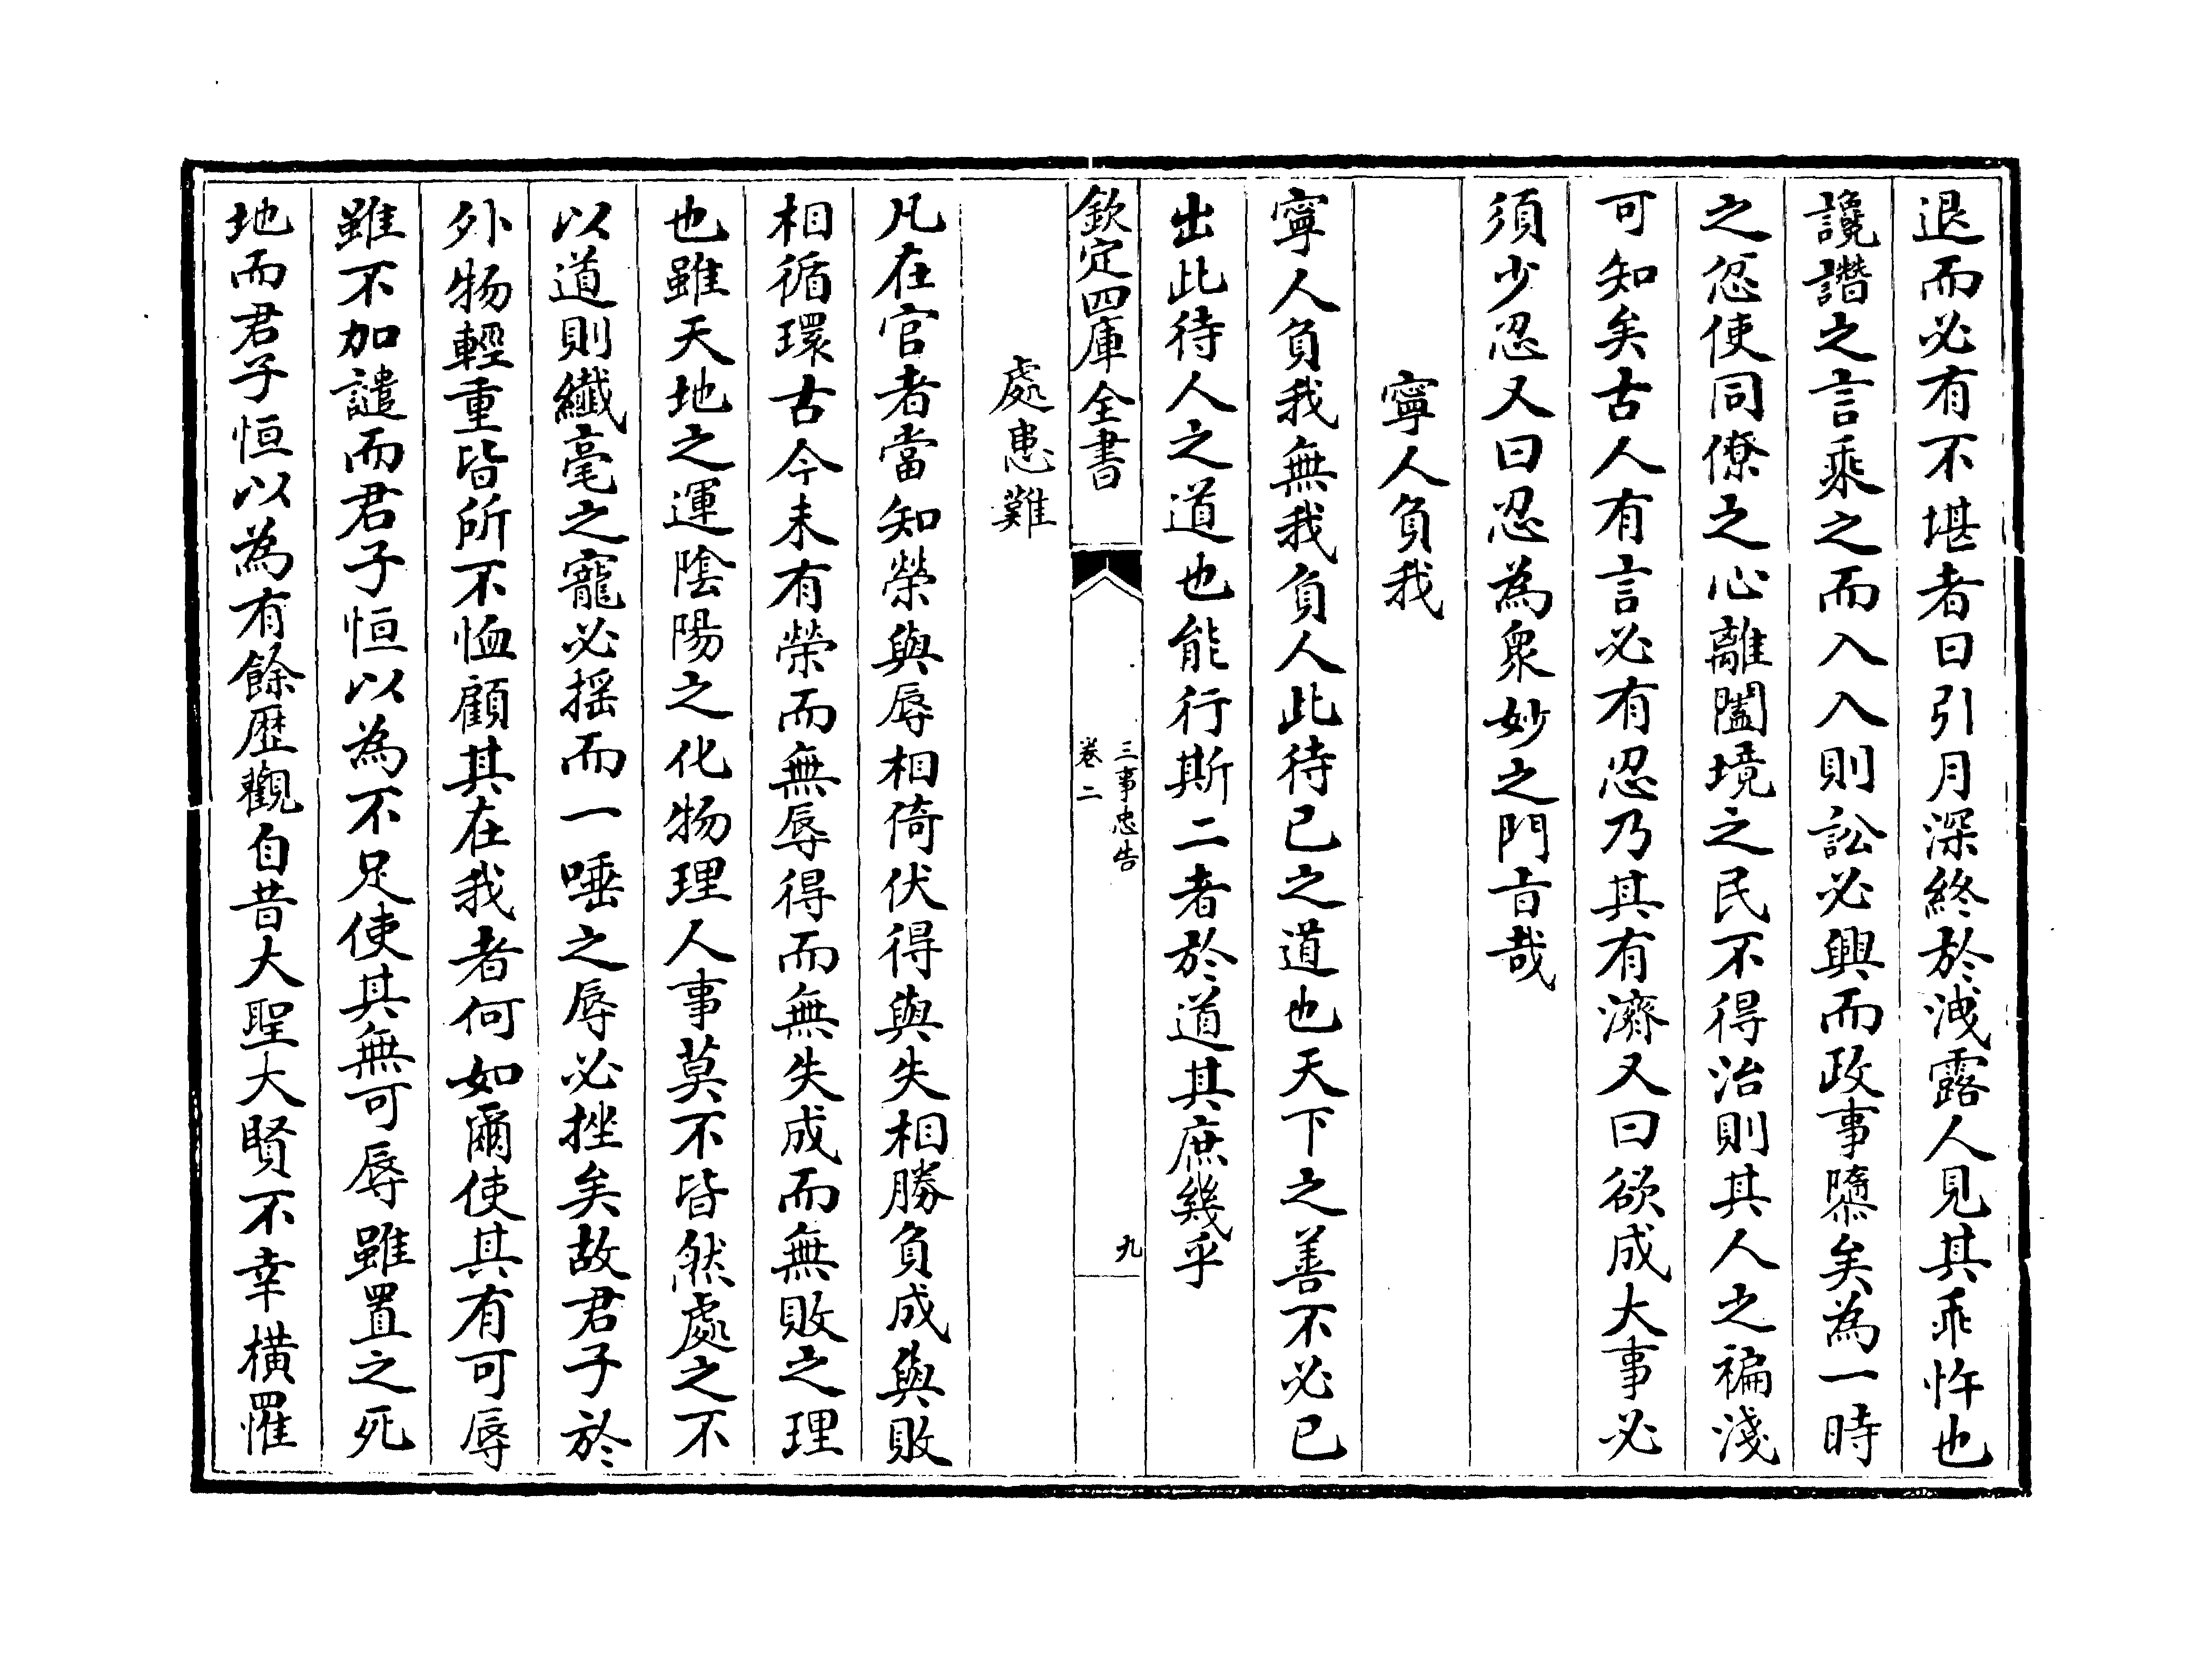 退而必有不堪者日引月深終於洩露人見其乖忤也
讒譖之言乘之而入入則訟必興而政事隳矣為一時
之忿使同僚之心離闔境之民不得治則其人之褊淺
可知矣古人有言必有忍乃其有濟又曰欲成大事必
須少忍又曰忍為衆妙之門旨哉
寧人負我
寧人負我無我負人此待已之道也天下之善不必已
出此待人之道也能行斯二者於道其庶幾乎
欽定四庫全書
三事忠告
卷二
九
處患難
凡在官者當知榮與辱相倚伏得與失相勝負成與敗
相循環古今未有榮而無辱得而無失成而無敗之理
也雖天地之運陰陽之化物理人事莫不皆然處之不
以道則纖毫之寵必揺而一唾之辱必挫矣故君子於
外物輕重皆所不恤顧其在我者何如爾使其有可辱
雖不加譴而君子恒以為不足使其無可辱雖置之死
地而君子恒以為有餘歴觀自昔大聖大賢不幸横罹